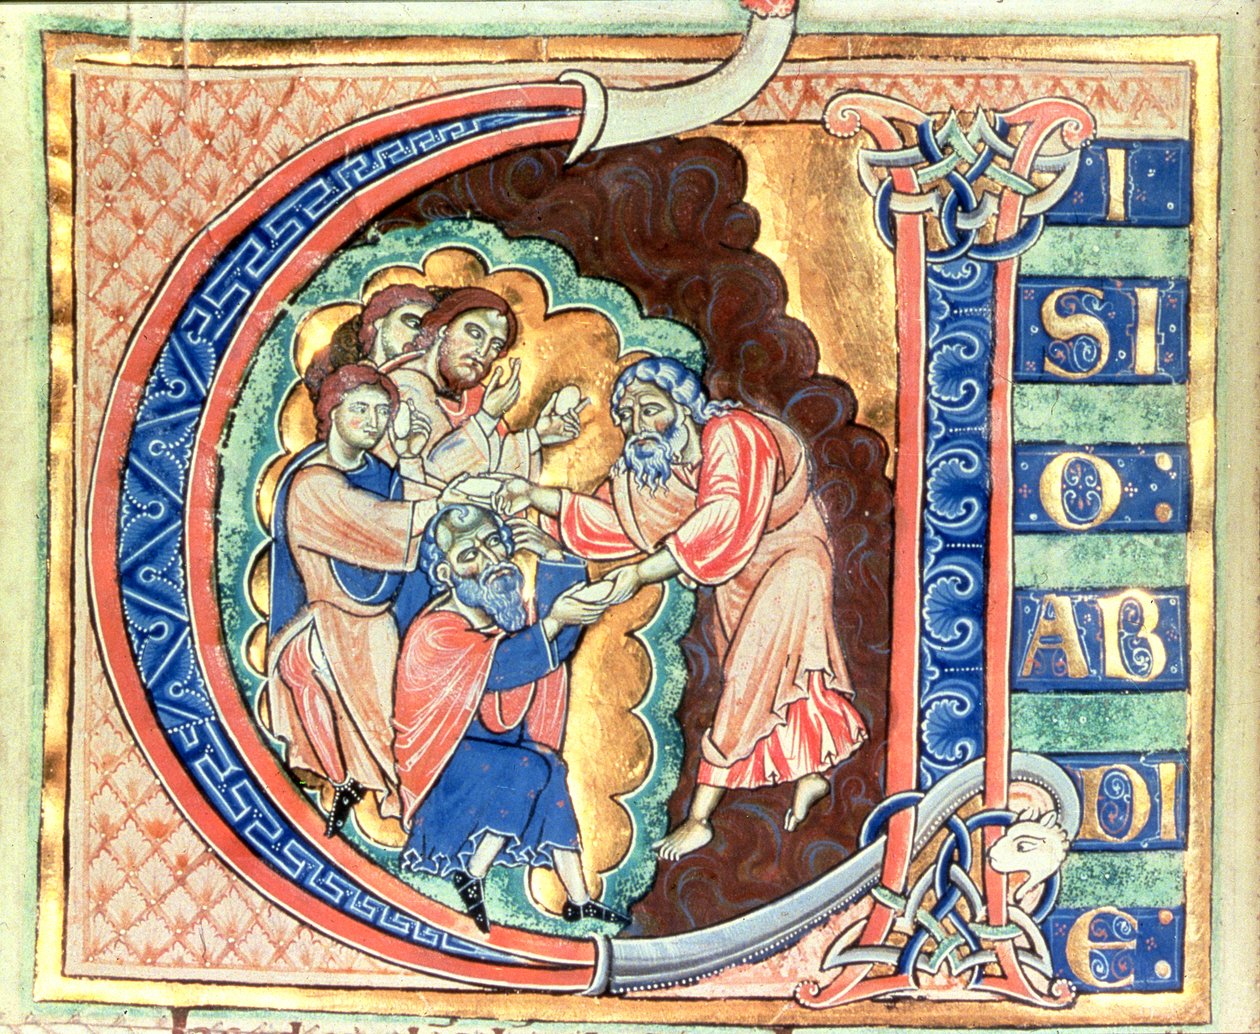 VI·
SI
O:
AB
DI
E: